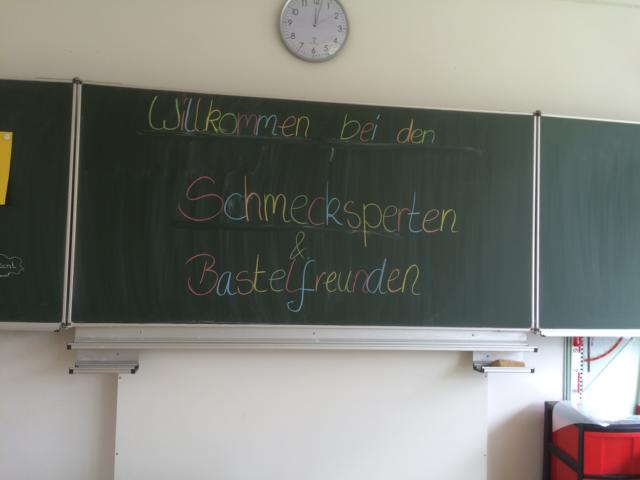 Willkommen bei den
Schmecksperten
&
Bastelfreunden